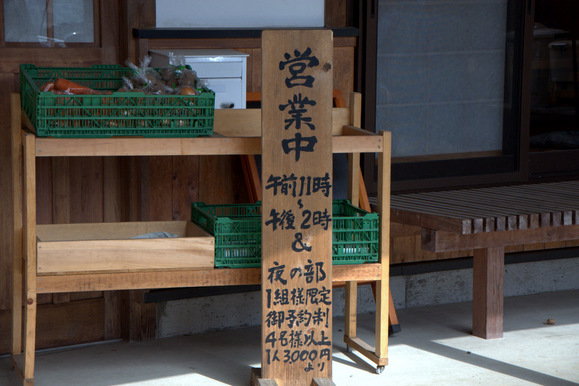 営業中
午前11時
～
午後2時
&
夜の部
1組様限定
御予約制
4名様以上
1人3,000円
より